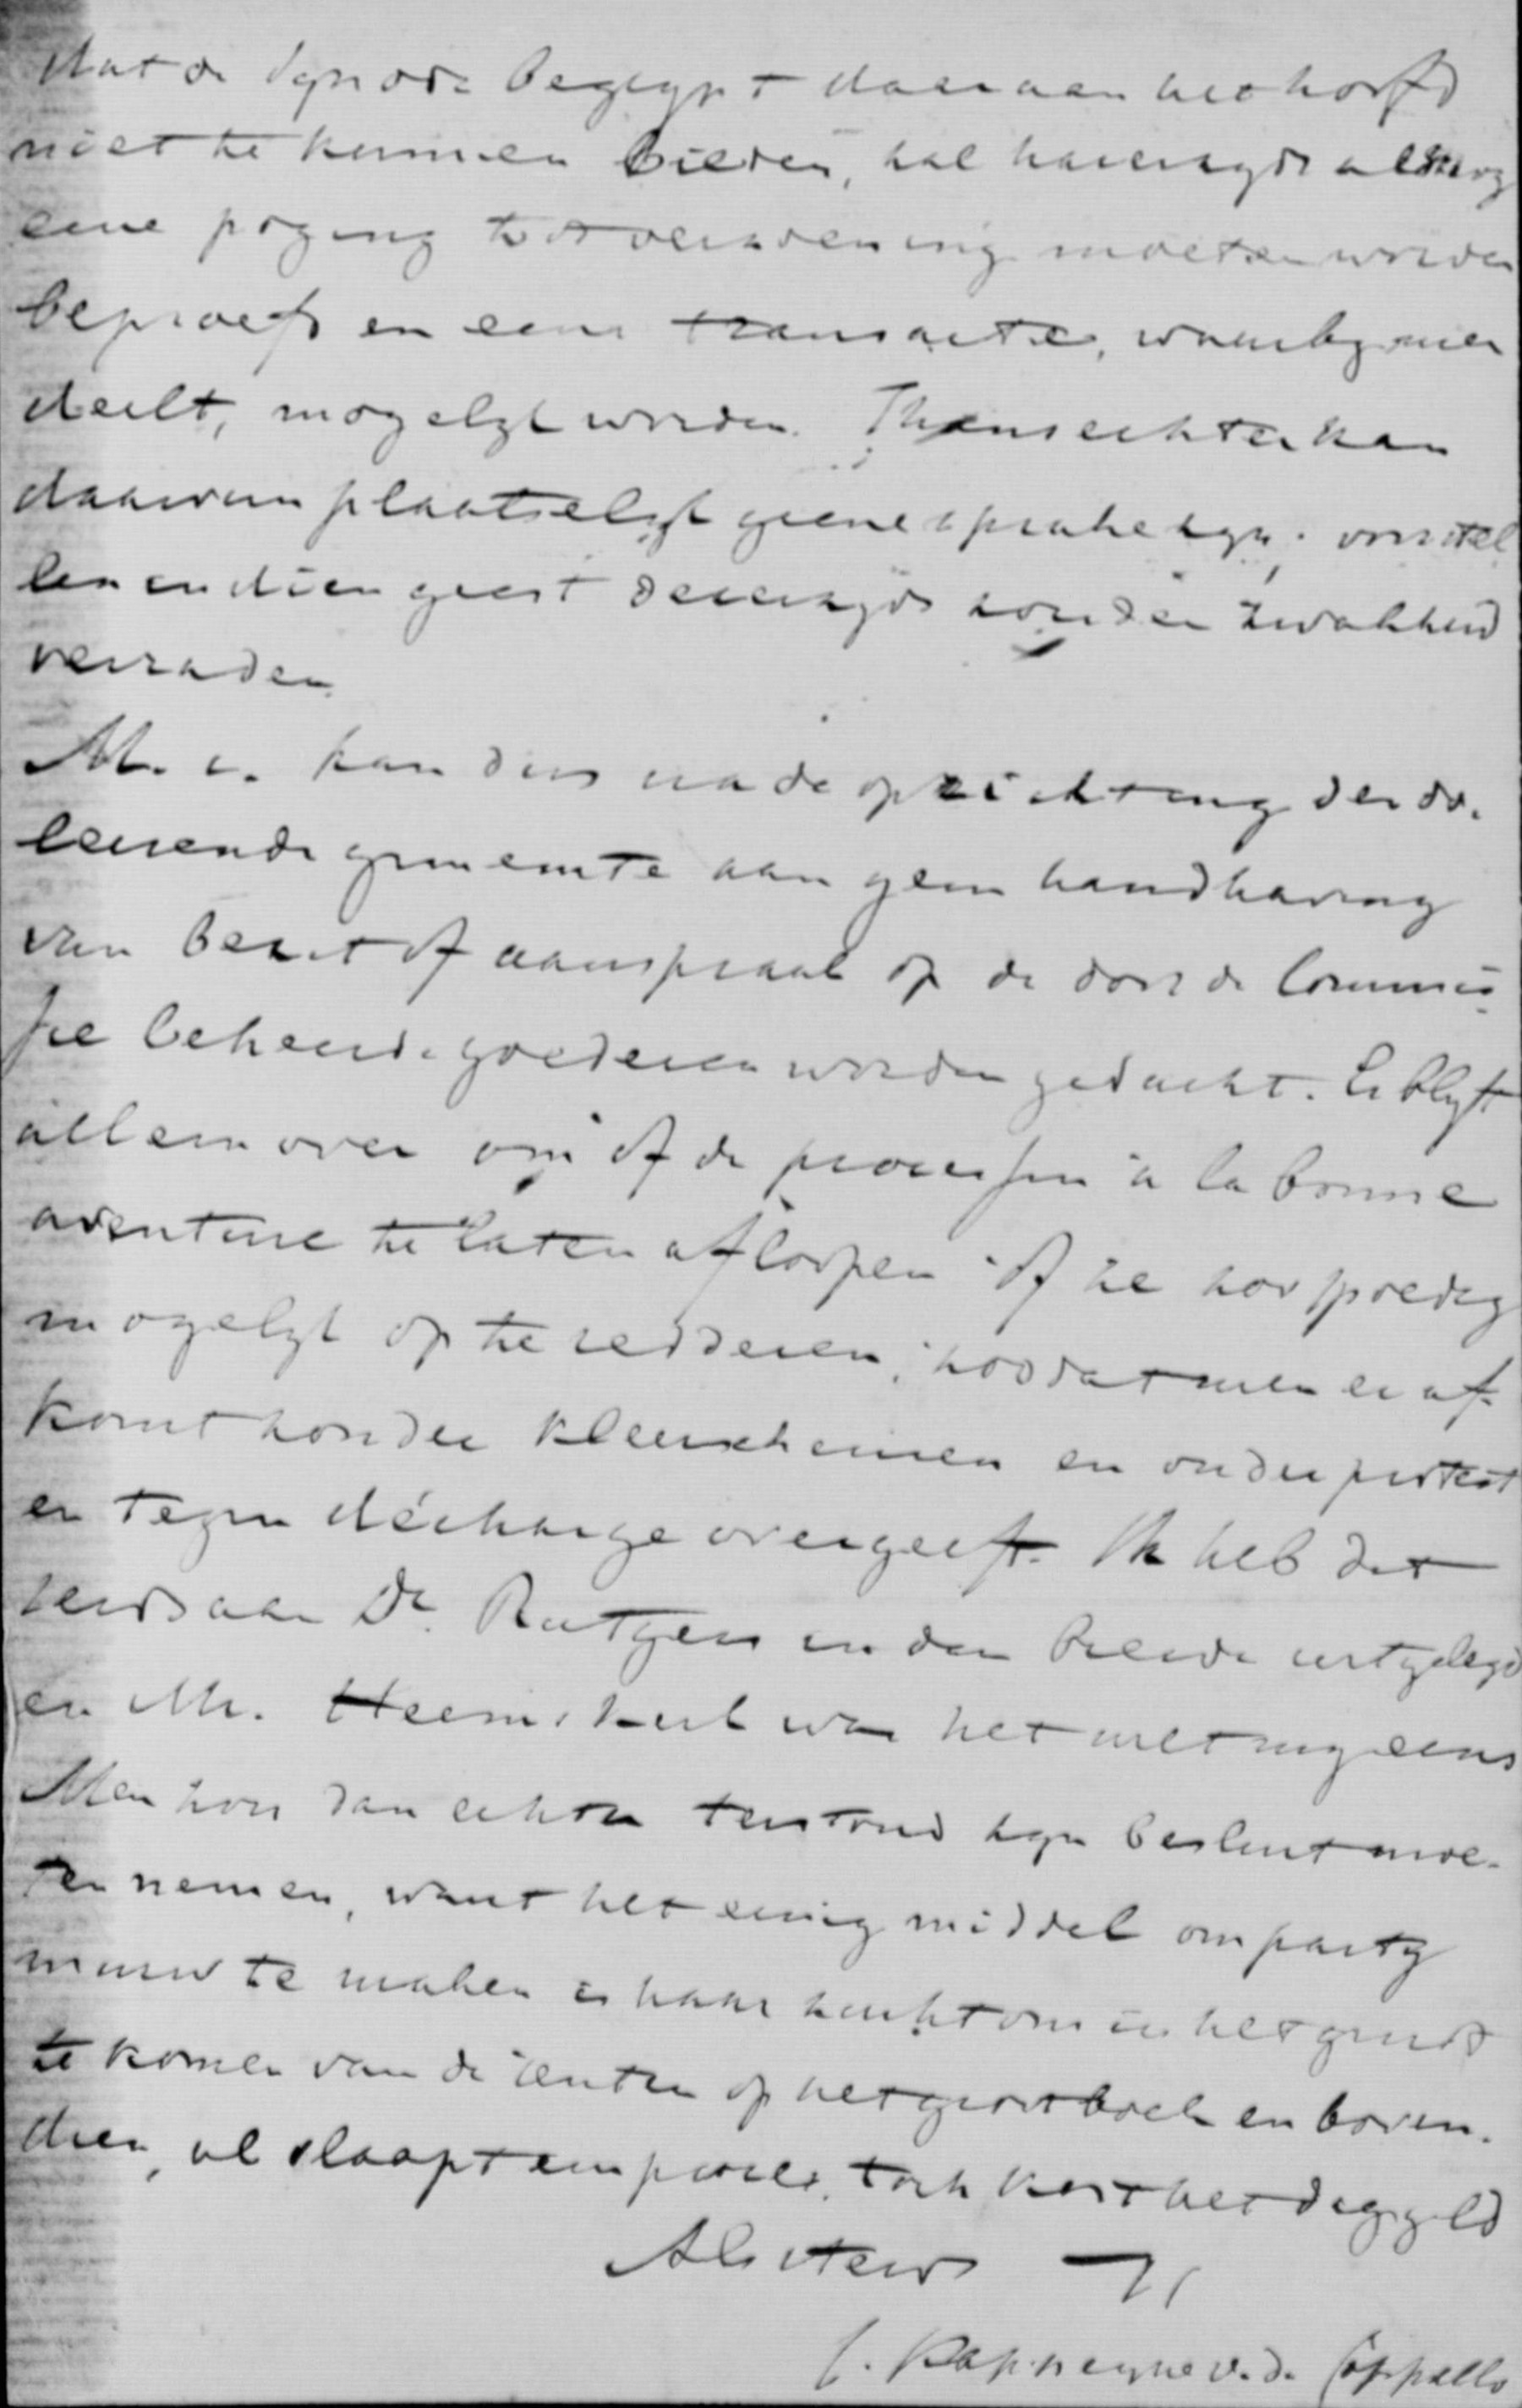 dat de Synode begrypt daaraan het hoofd
niet te kunnen bieden, zal harerzyds alsnog
eene poging tot verzoening moeten worden
beproefd en eene transactie, waarby men
deelt, mogelyk worden. Thans echter kan
daarvan plaatselyk geene sprake zyn; voorstel
len in dien geest dezerzyds zouden zwakheid
verraden.
M. i. kan dus na de oprichting der do-
leerende gemeente aan geen handhaving
van bezit of aanspraak op de door de Commis
sie beheerde goederen worden gedacht. Er blyft
alleen over om òf de processen à la bonne
aventure te laten afloopen òf ze zoo spoedig
mogelyk op te redderen, zoodat men er af-
komt zonder kleerscheuren en onder protest
en tegen décharge overgeeft. Ik heb dat
reeds aan Dr. Rutgers in den breede uitgelegd
en Mr. Heemskerk was het met my eens
Men zou dan echter terstond zyn besluit moe-
ten nemen, want het eenig middel om party
murw te maken is haar zucht om in het genot
te komen van de renten op het grootboek en boven-
dien, al slaapt een proces, toch kost het daggeld
Amsterd
C. Kappeyne v. d. Coppello